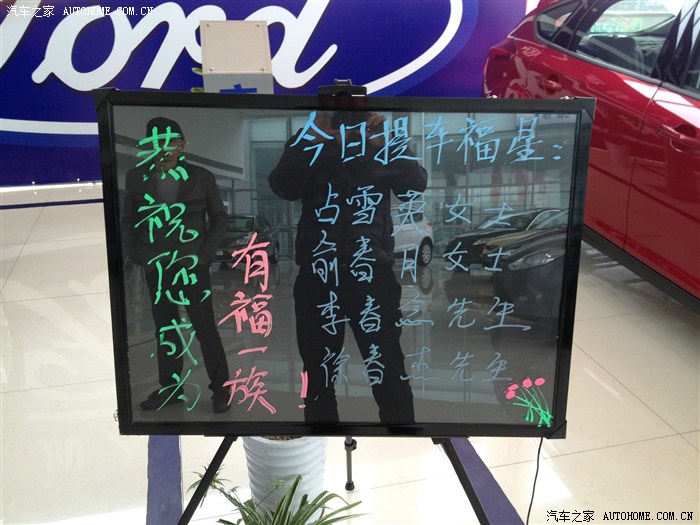 汽车之家 AUTOHOME.COM.CN
Ford
恭祝您成为
有福一族！
今日提车福星：
占雪英女士
俞春月女士
李春意先生
徐春杰先生
汽车之家 AUTOHOME.COM.CN